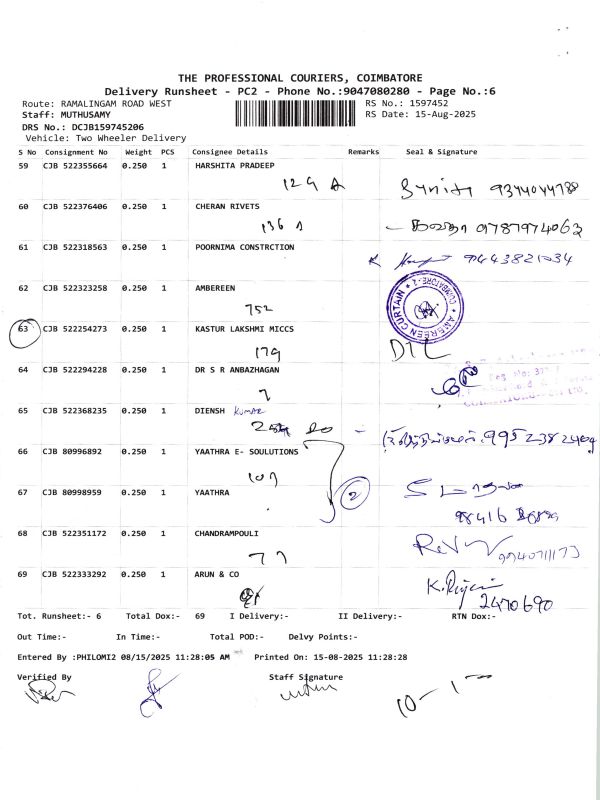 THE PROFESSIONAL COURIERS, COIMBATORE
Delivery Runsheet - PC2 - Phone No.:9047080280 - Page No.:6
Route: RAMALINGAM ROAD WEST RS No.: 1597452
Staff: MUTHUSAMY RS Date: 15-Aug-2025
DRS No.: DCJB159745206
Vehicle: Two Wheeler Delivery
S No Consignment No Weight PCS Consignee Details Remarks Seal & Signature
59 CJB 522355664 0.250 1 HARSHITA PRADEEP
129 A
60 CJB 522376406 0.250 1 CHERAN RIVETS
136 A 9787974063
61 CJB 522318563 0.250 1 POORNIMA CONSTRCTION
9443821034
62 CJB 522323258 0.250 1 AMBEREEN
752
AMBEREEN CURTAIN COIMBATORE-2
63 CJB 522254273 0.250 1 KASTUR LAKSHMI MICCS
179 DTL
64 CJB 522294228 0.250 1 DR S R ANBAZHAGAN
7
65 CJB 522368235 0.250 1 DIENSH KUMAR
66 CJB 80996892 0.250 1 YAATHRA E- SOULUTIONS
107
67 CJB 80998959 0.250 1 YAATHRA
2
68 CJB 522351172 0.250 1 CHANDRAMPOULI
77
69 CJB 522333292 0.250 1 ARUN & CO
2470690
Tot. Runsheet:- 6 Total Dox:- 69 I Delivery:- II Delivery:- RTN Dox:-
Out Time:- In Time:- Total POD:- Delvy Points:-
Entered By :PHILOMI2 08/15/2025 11:28:05 AM Printed On: 15-08-2025 11:28:28
Verified By Staff Signature